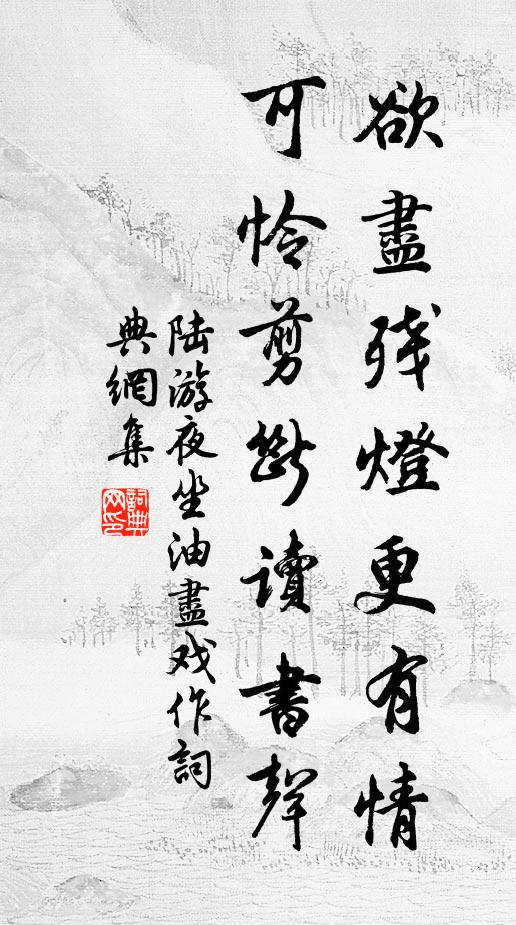 欲盡残燈更有情
可怜剪斷讀書聲
陆游夜坐油盡戏作詞
典網集
詞典網印